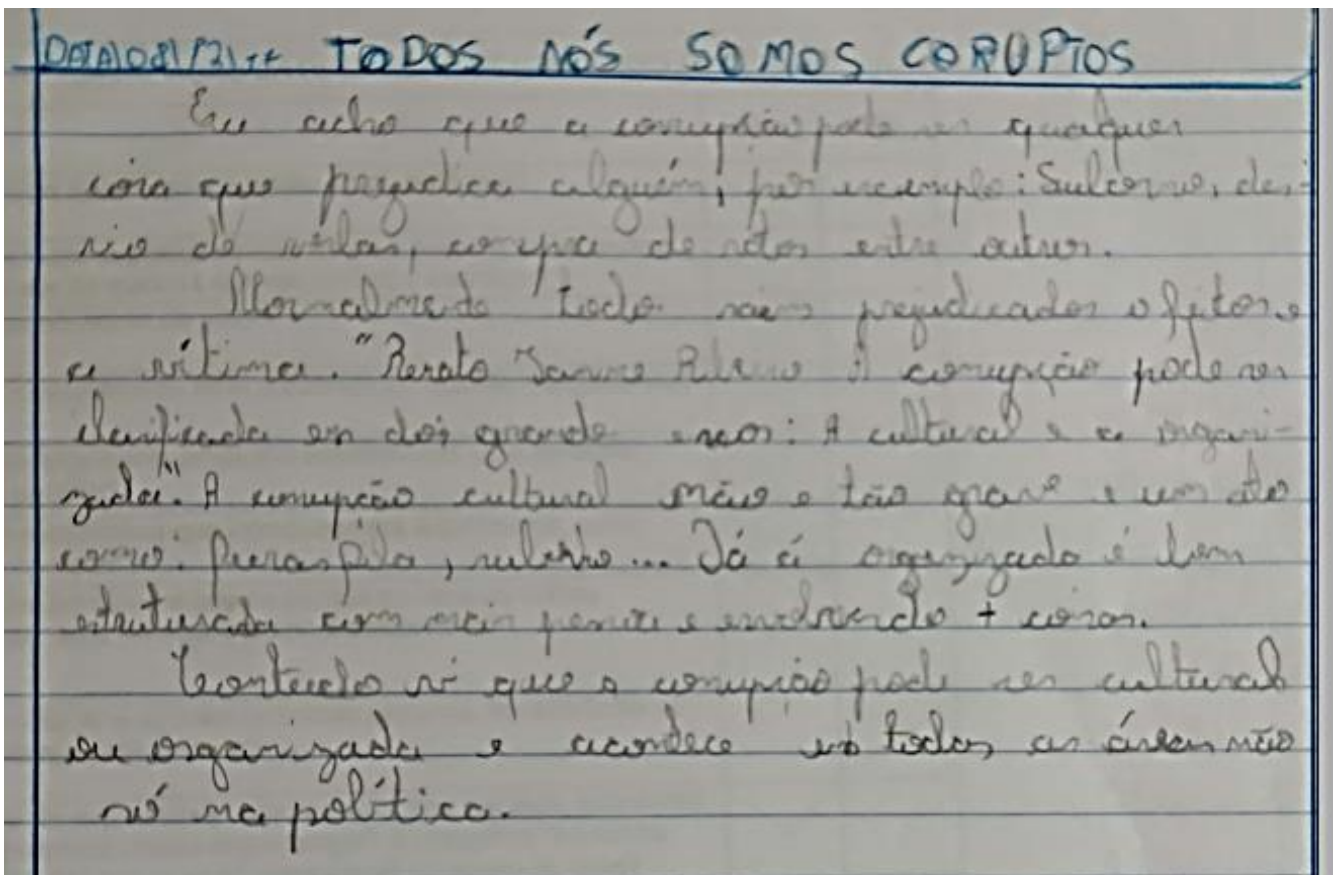 TODOS NÓS SOMOS CORUPTOS
Eu acho que a corrupção pode ser qualquer
coisa que prejudica alguém, por exemplo: Suborno, des-
vio de verbas, compra de votos entre outros.
Normalmente todo saem prejudicados o feitor e
a vítima. "Renato Janine Ribeiro A corrupção pode ser
classificada em dois grande : A cultural e a organi-
zada". A corrupção cultural não e tão grave e um ato
como: furar fila, suborno... Já á organizado é bem
estruturada com mais pessoas e envolvendo + coisas.
Contudo vi que a corrupção pode ser cultural
ou organizada e acondece em todas as áreas não
só na política.